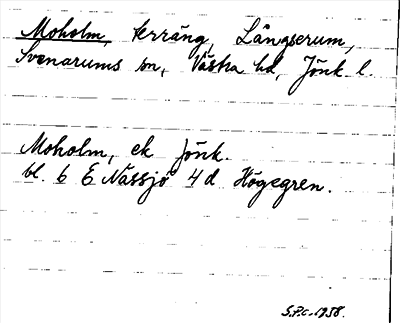 Moholm, terräng, Långserum,
Svenarums sn, Västra hd, Jönk. l.
Moholm, ek Jönk.
bl. 6 E Nässjö 4d Högegren.
S.P.c. 1958.